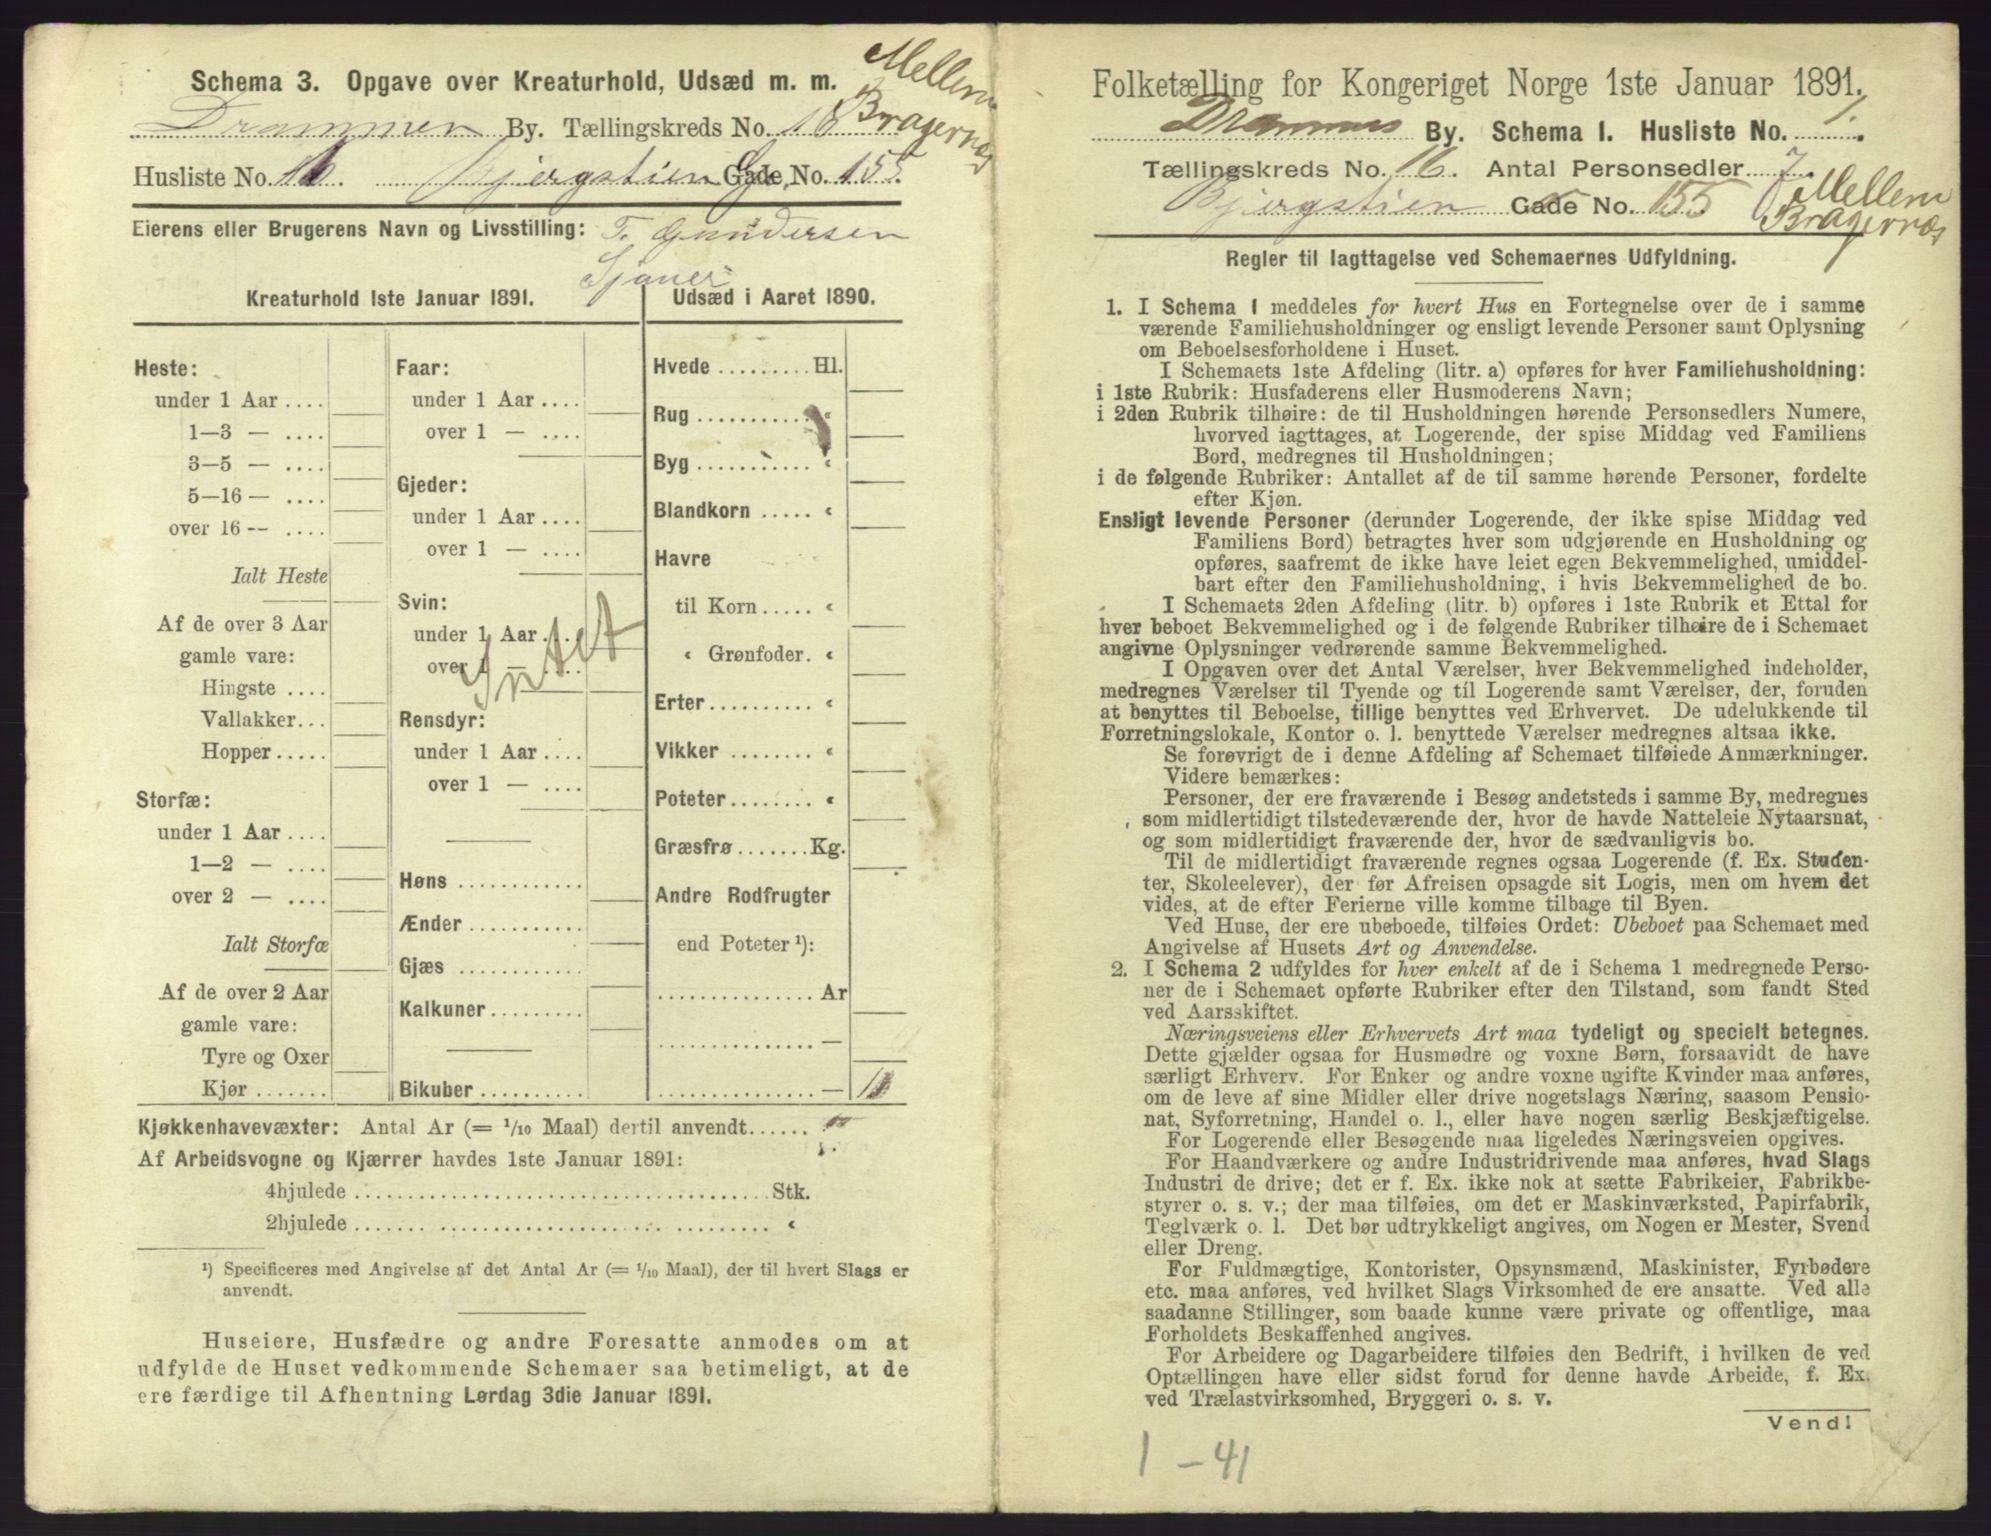 Schema 3. Opgave over Kreaturhold, Udsæd m. m.
Mellem
Bragernæs
Drammen By. Tællingskreds No. 16
Husliste No. 1. Bjergstien Gade No. 155.
Eierens eller Brugerens Navn og Livsstilling: T. Gundersen
Sjauer
Kreaturhold 1ste Januar 1891.
Heste:
under 1 Aar ....
1—3 — ....
3—5 — ....
5—16 — ....
over 16 -- ....
Ialt Heste
Af de over 3 Aar
gamle vare:
Hingste ....
Vallakker...
Hopper .....
Storfæ:
under 1 Aar ....
1—2 — ....
over 2 — ....
Ialt Storfæ
Af de over 2 Aar
gamle vare:
Tyre og Oxer
Kjør .......
Faar:
under 1 Aar ....
over 1 — ....
Gjeder:
under 1 Aar ....
over 1 — ....
Svin:
under 1 Aar ....
over 1 — ....
Intet
Rensdyr:
under 1 Aar ....
over 1 — ....
Høns ............
Ænder...........
Gjæs ............
Kalkuner.........
Bikuber ..........
Udsæd i Aaret 1890.
Hvede ......... Hl.
Rug ........... "
Byg ........... "
Blandkorn ..... "
Havre
til Korn ..... "
" Grønfoder. "
Erter.......... "
Vikker ........ "
Poteter........ "
Græsfrø....... Kg.
Andre Rodfrugter
end Poteter ¹):
............... Ar
............... —
............... —
Kjøkkenhavevæxter: Antal Ar (= 1/10 Maal) dertil anvendt......
Af Arbeidsvogne og Kjærrer havdes 1ste Januar 1891:
4hjulede ........................................ Stk.
2hjulede ........................................ "
¹) Specificeres med Angivelse af det Antal Ar (= 1/10 Maal), der til hvert Slags er
anvendt.
Huseiere, Husfædre og andre Foresatte anmodes om at
udfylde de Huset vedkommende Schemaer saa betimeligt, at de
ere færdige til Afhentning Lørdag 3die Januar 1891.
Folketælling for Kongeriget Norge 1ste Januar 1891.
Drammens By. Schema I. Husliste No. 1.
Tællingskreds No. 16. Antal Personsedler 7
Bjergstien Gade No. 155
Mellem
Bragernæs
Regler til Iagttagelse ved Schemaernes Udfyldning.
1. I Schema I meddeles for hvert Hus en Fortegnelse over de i samme
værende Familiehusholdninger og ensligt levende Personer samt Oplysning
om Beboelsesforholdene i Huset.
I Schemaets 1ste Afdeling (litr. a) opføres for hver Familiehusholdning:
i 1ste Rubrik: Husfaderens eller Husmoderens Navn;
i 2den Rubrik tilhøire: de til Husholdningen hørende Personsedlers Numere,
hvorved iagttages, at Logerende, der spise Middag ved Familiens
Bord, medregnes til Husholdningen;
i de følgende Rubriker: Antallet af de til samme hørende Personer, fordelte
efter Kjøn.
Ensligt levende Personer (derunder Logerende, der ikke spise Middag ved
Familiens Bord) betragtes hver som udgjørende en Husholdning og
opføres, saafremt de ikke have leiet egen Bekvemmelighed, umiddel-
bart efter den Familiehusholdning, i hvis Bekvemmelighed de bo.
I Schemaets 2den Afdeling (litr. b) opføres i 1ste Rubrik et Ettal for
hver beboet Bekvemmelighed og i de følgende Rubriker tilhøire de i Schemaet
angivne Oplysninger vedrørende samme Bekvemmelighed.
I Opgaven over det Antal Værelser, hver Bekvemmelighed indeholder,
medregnes Værelser til Tyende og til Logerende samt Værelser, der, foruden
at benyttes til Beboelse, tillige benyttes ved Erhvervet. De udelukkende til
Forretningslokale, Kontor o. l. benyttede Værelser medregnes altsaa ikke.
Se forøvrigt de i denne Afdeling af Schemaet tilføiede Anmærkninger.
Videre bemærkes:
Personer, der ere fraværende i Besøg andetsteds i samme By, medregnes
som midlertidigt tilstedeværende der, hvor de havde Natteleie Nytaarsnat,
og som midlertidigt fraværende der, hvor de sædvanligvis bo.
Til de midlertidigt fraværende regnes ogsaa Logerende (f. Ex. Studen-
ter, Skoleelever), der før Afreisen opsagde sit Logis, men om hvem det
vides, at de efter Ferierne ville komme tilbage til Byen.
Ved Huse, der ere ubeboede, tilføies Ordet: Ubeboet paa Schemaet med
Angivelse af Husets Art og Anvendelse.
2. I Schema 2 udfyldes for hver enkelt af de i Schema 1 medregnede Perso-
ner de i Schemaet opførte Rubriker efter den Tilstand, som fandt Sted
ved Aarsskiftet.
Næringsveiens eller Erhvervets Art maa tydeligt og specielt betegnes.
Dette gjælder ogsaa for Husmødre og voxne Børn, forsaavidt de have
særligt Erhverv. For Enker og andre voxne ugifte Kvinder maa anføres,
om de leve af sine Midler eller drive nogetslags Næring, saasom Pensio-
nat, Syforretning, Handel o. l., eller have nogen særlig Beskjæftigelse.
For Logerende eller Besøgende maa ligeledes Næringsveien opgives.
For Haandværkere og andre Industridrivende maa anføres, hvad Slags
Industri de drive; det er f. Ex. ikke nok at sætte Fabrikeier, Fabrikbe-
styrer o. s. v.; der maa tilføies, om det er Maskinværksted, Papirfabrik,
Teglværk o. l. Det bør udtrykkeligt angives, om Nogen er Mester, Svend
eller Dreng.
For Fuldmægtige, Kontorister, Opsynsmænd, Maskinister, Fyrbødere
etc. maa anføres, ved hvilket Slags Virksomhed de ere ansatte. Ved alle
saadanne Stillinger, som baade kunne være private og offentlige, maa
Forholdets Beskaffenhed angives.
For Arbeidere og Dagarbeidere tilføies den Bedrift, i hvilken de ved
Optællingen have eller sidst forud for denne havde Arbeide, f. Ex.
ved Trælastvirksomhed, Bryggeri o. s. v.
Vend!
1 - 41